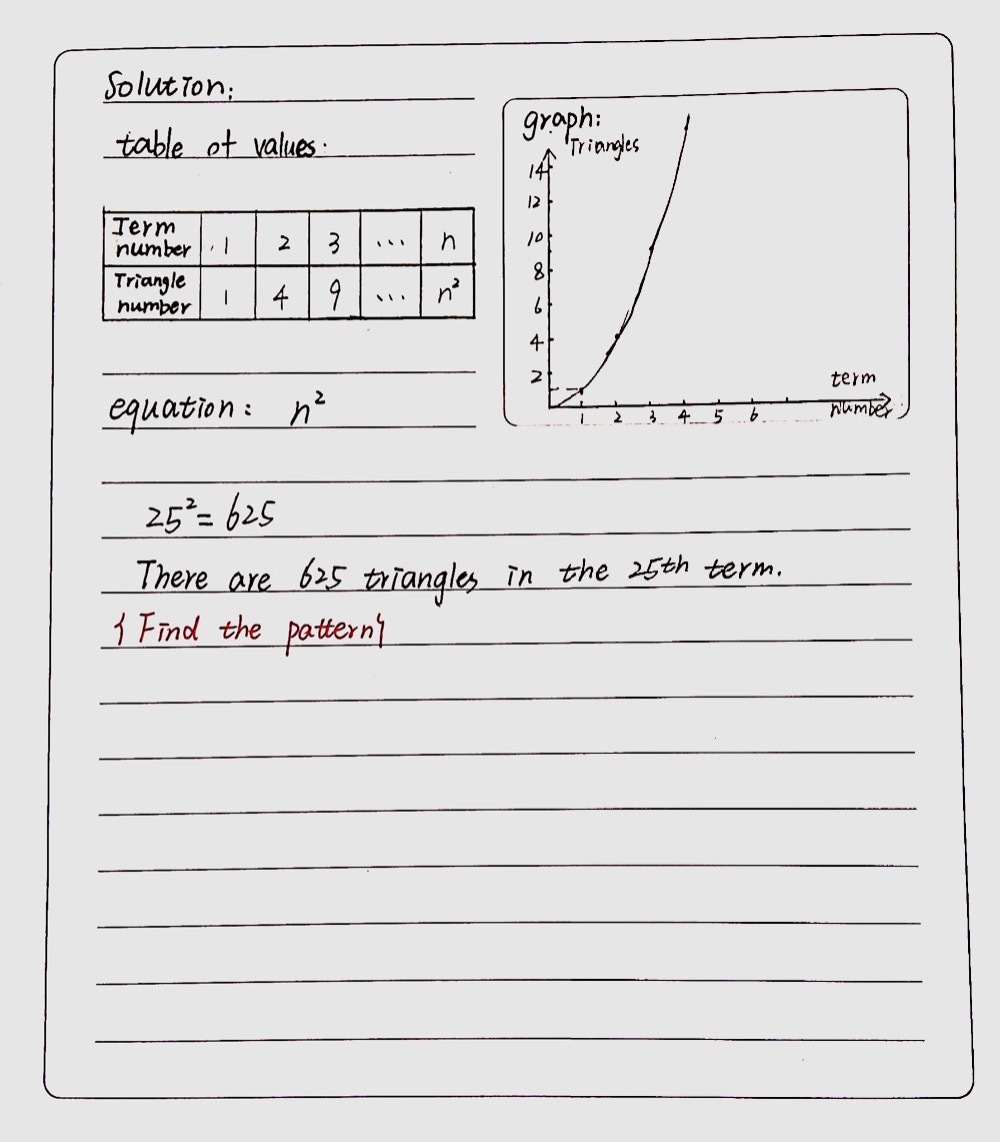 Solution:
table of values.
Term number 1 2 3 ... n
Triangle number 1 4 9 ... n²
equation: n²
graph:
Triangles
14
12
10
8
6
4
2
1 2 3 4 5 6
term
number
25² = 625
There are 625 triangles in the 25th term.
{Find the pattern}